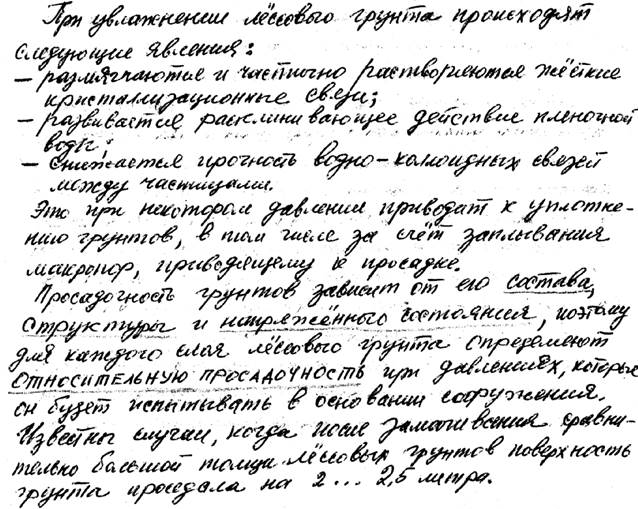 При увлажнении лёссового грунта происходят
следующие явления:
— размягчаются и частично растворяются жёсткие
кристаллизационные связи;
— развивается расклинивающее действие пленочной
воды;
— снижается прочность водно-коллоидных связей
между частицами.
Это при некотором давлении приводит к уплотне-
нию грунтов, в том числе за счёт заплывания
макропор, приводящему к просадке.
Просадочность грунтов зависит от его состава,
структуры и напряжённого состояния, поэтому
для каждого слоя лёссового грунта определяют
ОТНОСИТЕЛЬНУЮ ПРОСАДОЧНОСТЬ при давлениях, которые
он будет испытывать в основании сооружения.
Известны случаи, когда после замачивания сравни-
тельно большой толщи лёссовых грунтов поверхность
грунта проседала на 2... 2,5 метра.